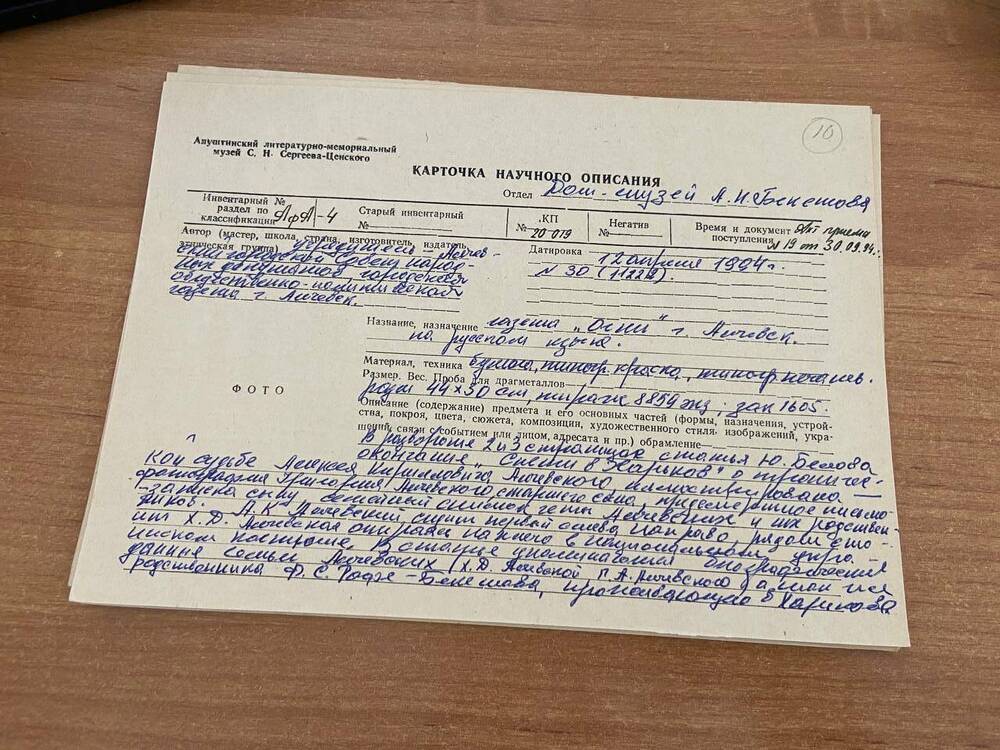 10
Алуштинский литературно-мемориальный
музей С. Н. Сергеева-Ценского
КАРТОЧКА НАУЧНОГО ОПИСАНИЯ
Отдел Дом-музей А. Н. Бекетова
Инвентарный №
раздел по
классификации АФД-4
Старый инвентарный
№
КП
№ 20 019
Негатив
№
Время и документ Акт приема
поступления N 19 от 30.09.94г.
Автор (мастер, школа, страна, изготовитель, издатель,
этническая группа) Учредитель - Алчев-
ский городской Совет народ-
ных депутатов, городская
общественно-политическая
газета г. Алчевск.
Датировка 12 апреля 1994г.
N 30 (11229).
Название, назначение газета "Огни" г. Алчевск.
на русском языке.
Материал, техника бумага, типогр. краска, типогр. печать.
Размер. Вес. Проба для драгметаллов
44х30 см, тираж 8854 экз; зак 1605.
Описание (содержание) предмета и его основных частей (формы, назначения, устрой-
ства, покроя, цвета, сюжета, композиции, художественного стиля, изображений, укра-
шений, связи с событием или лицом, адресата и пр.) обрамление
В развороте 2 и 3 страницах статья Ю. Белова
окончания "Спеши в Харьков" о трагичес-
кой судьбе Алексея Кирилловича Алчевского иллюстрирована
фотография Григория Алчевского старшего сына, предсмертное письмо
-записка сыну, семейный снимок четы Алчевских и их родствен-
ников. А. К. Алчевский сидит первый слева направо, рядом сто-
ит Х. Д. Алчевская опираясь на него в национальном укра-
инском костюме. В статье упоминаются биографические
данные семьи Алчевских (Х. Д. Алчевской, Г. А. Алчевского а так же
родственника Ф. С. Рофе-Бекетова, проживающего в Харькове.